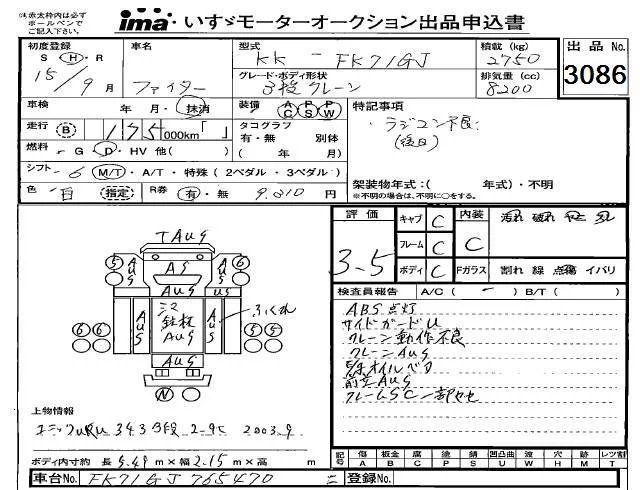 (注)赤太枠内は必ず
ボールペンで
ご記入下さい。
ima・いすゞモーターオークション出品申込書
初度登録 S H・R 15/9月
車名 ファイター
型式 KK-FK71GJ
積載(kg) 2750
出品No. 3086
グレード・ボディ形状 3段クレーン
排気量(cc) 8200
車検 年 月・抹消
装備 AC PS PW
特記事項
・ラジコン不良
(後日)
走行 B 175,000km「 」
タコグラフ 有・無 別体 ( 年 月)
燃料 G・D・HV 他( )
シフト 6 M/T・A/T・特殊(2ペダル・3ペダル)
色 白 指定 R券 有・無 9,210円
架装物年式:( 年式)・不明
※不明の場合は、不明に○をする。
評価 3.5
キャブ C 内装 C 汚れ 破れ
フレーム C
ボディ C Fガラス 割れ 線 点傷 イバリ
検査員報告 A/C( ー ) B/T( )
ABS点灯
サイドガードU
クレーン動作不良
クレーンAUS
オイルベタ
AUS
フレームSC一部セセ
TAUS
AS
AUS
AUS
AUS
AUS
シマ
鉄板
AUS
AUS
AUS
ふくれ
AUS
5
5
6
6
6
6
N
上物情報
ユニックURU343 3段 2.9t 2003.9
ボディ内寸約 長 5.49m×幅 2.15m×高 m
記号 傷A 板金B 腐C 塗P 錆S 凹凸曲U 波W 穴H 跡M レツ割T
車台No. FK71GJ 765470
登録No.